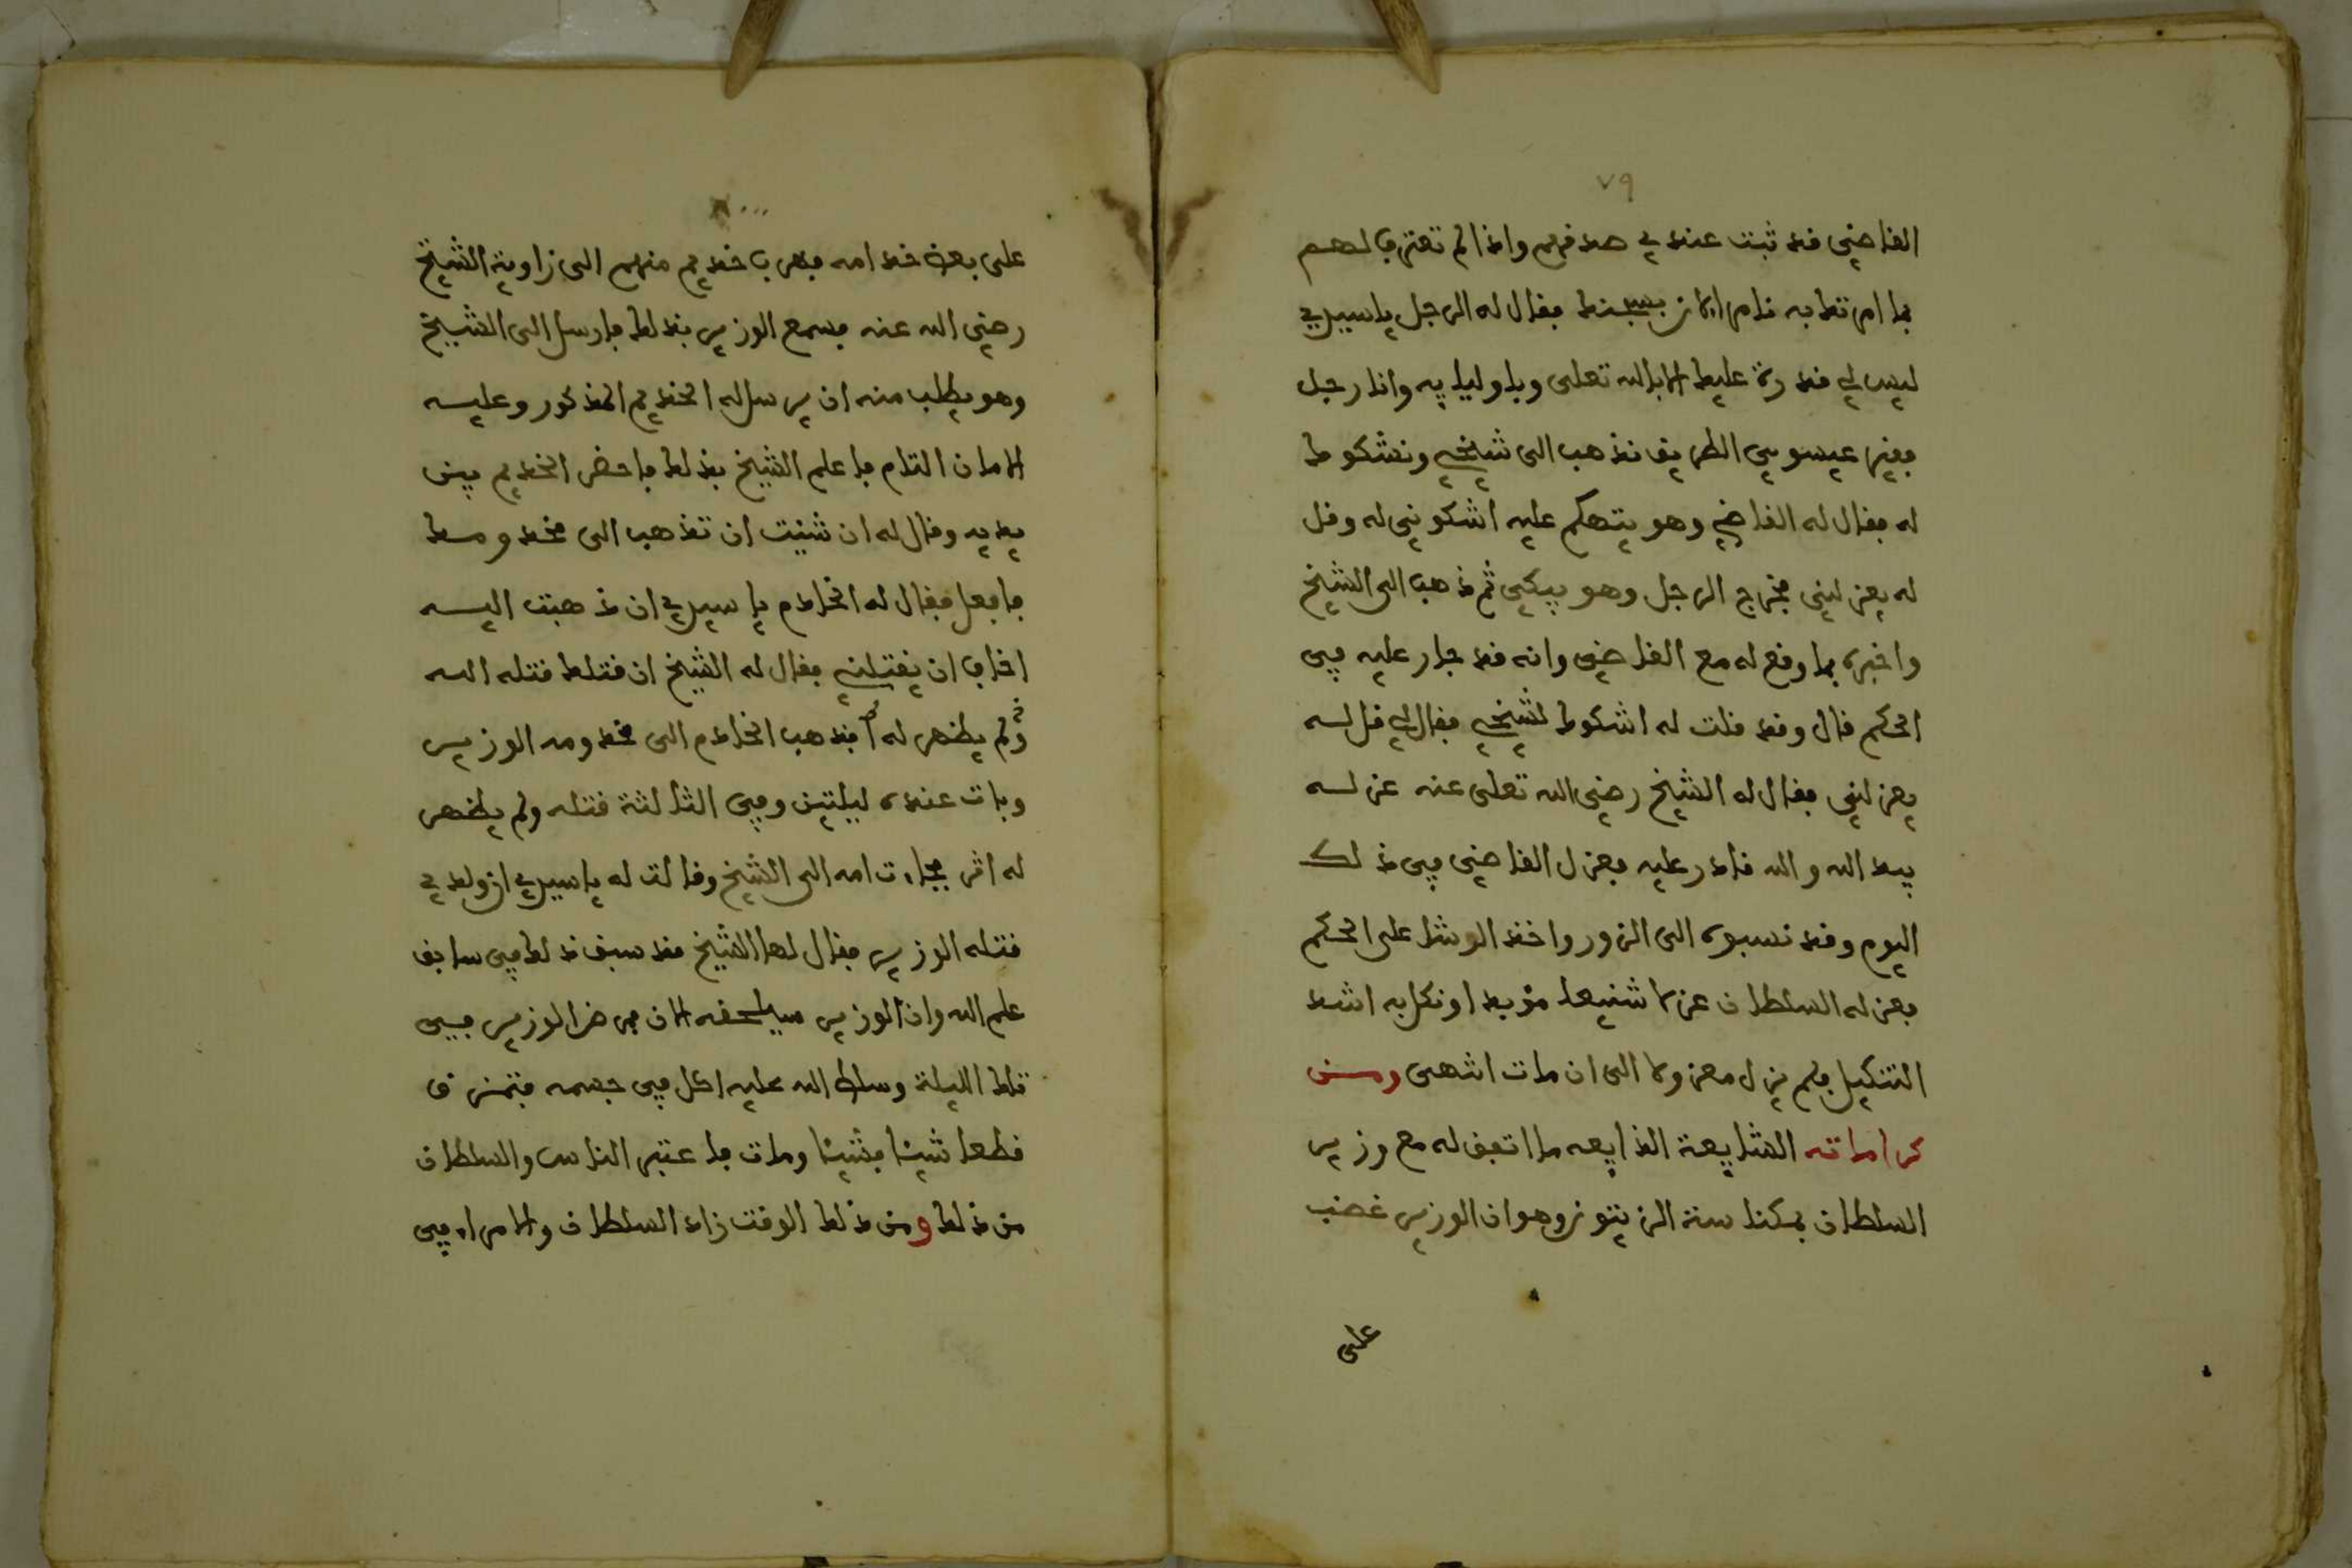 ٧٩
القاضي قد ثبت عندي صدقهم واذا لم تعترف لهم
بما امرتك به نامر الان بسجنك فقال له الرجل يا سيدي
ليس لي قدرة عليك الا بالله تعلى وباوليايه وانا رجل
فقير عيسوي الطريق نذهب الى شيخي ونشكوك
له فقال له القاضي وهو يتهكم عليه اشكوني له وقل
له يعزلني فخرج الرجل وهو يبكي ثم ذهب الى الشيخ
واخبره بما وقع له مع القاضي وانه قد جار عليه في
الحكم قال وقد قلت له اشكوك لشيخي فقال لي قل له
يعزلني فقال له الشيخ رضي الله تعلى عنه عزله
بيد الله والله قادر عليه فعزل القاضي في ذلك
اليوم وقد نسبوه الى الزور واخذ الرشا على الحكم
فعزله السلطان عزلا شنيعا مؤبدا ونكل به اشد
التنكيل فلم يزل معزولا الى ان مات انتهى ومن
كراماته الشايعة الذايعه ما اتفق له مع وزير
السلطان بمكناسة الزيتون وهو ان الوزير غضب
على
٨٠
على بعض خدامه فهرب خديم منهم الى زاوية الشيخ
رضي الله عنه فسمع الوزير بذلك فارسل الى الشيخ
وهو يطلب منه ان يرسل له الخديم المذكور وعليه
الامان التام فاعلم الشيخ بذلك فاحضر الخديم بين
يديه وقال له ان شئت ان تذهب الى مخدومك
فافعل فقال له الخادم يا سيدي ان ذهبت اليه
اخاف ان يقتلني فقال له الشيخ ان قتلك قتله الله
ولم يظهر له اثر فذهب الخادم الى مخدومه الوزير
وبات عنده ليلتين وفي الثالثة قتله ولم يظهر
له اثر فجاءت امه الى الشيخ وقالت له يا سيدي ان ولدي
قتله الوزير فقال لها الشيخ قد سبق ذلك في سابق
علم الله وان الوزير سيلحقه الان فمرض الوزير في
تلك الليلة وسلط الله عليه اكل في جسمه فتمزق
قطعا شيئا فشيئا ومات فاعتبر الناس والسلطان
من ذلك ومن ذلك الوقت زاد السلطان والامراء في